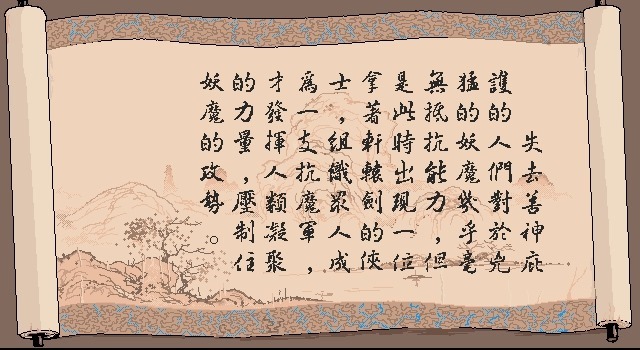 失去善神庇
護的人們對於兇
猛的妖魔幾乎毫
無抵抗能力，但
是此時出現一位
拿著軒轅劍的俠
士，組織眾人成
為一支抗魔軍，
才發揮人類凝聚
的力量，壓制住
妖魔的攻勢。